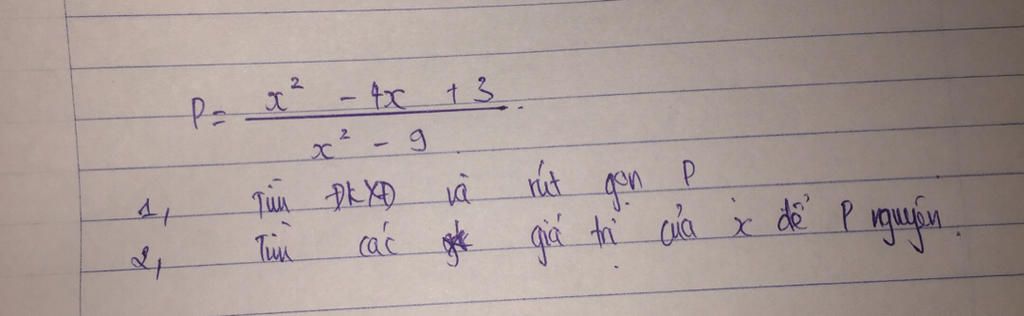 P = \frac{x^2 - 4x + 3}{x^2 - 9}.
1, Tìm ĐKXĐ và rút gọn P
2, Tìm các giá trị của x để P nguyên.